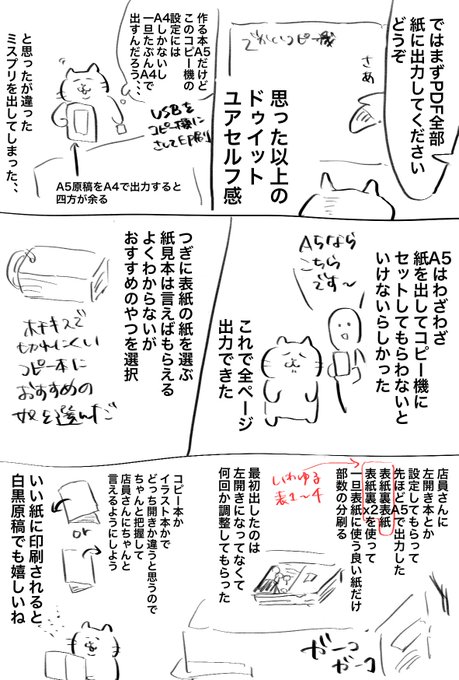 ではまずPDF全部
紙に出力してください
どうぞ
でかいコピー機
さぁ
思った以上の
ドゥイット
ユアセルフ感
作る本A5だけど
このコピー機の
設定には
A4しかないし
一旦たぶんA4で
出すんだろう、、、
USBを
コピー機に
さして印刷
と思ったが違った
ミスプリを出してしまった、、
A5原稿をA4で出力すると
四方が余る
A5はわざわざ
紙を出してコピー機に
セットしてもらわないと
いけないらしかった
A5なら
こちら
です〜
これで全ページ
出力できた
つぎに表紙の紙を選ぶ
紙見本は言えばもらえる
よくわからないが
おすすめのやつを選択
ホチキスで
切れにくい
コピー本に
おすすめの
奴を選んだ
店員さんに
左開き本とか
設定してもらって
先ほどA5で出力した
表紙裏表紙
表紙裏x2を使って
一旦表紙に使う良い紙だけ
部数の分刷る
いわゆる
表1〜4
最初出したのは
左開きになってなくて
何回か調整してもらった
ガーコ
ガーコ
コピー本か
イラスト本かで
どっち開きか違うと思うので
ちゃんと把握して
店員さんにちゃんと
言えるようにしよう
or
いい紙に印刷されると
白黒原稿でも嬉しいね